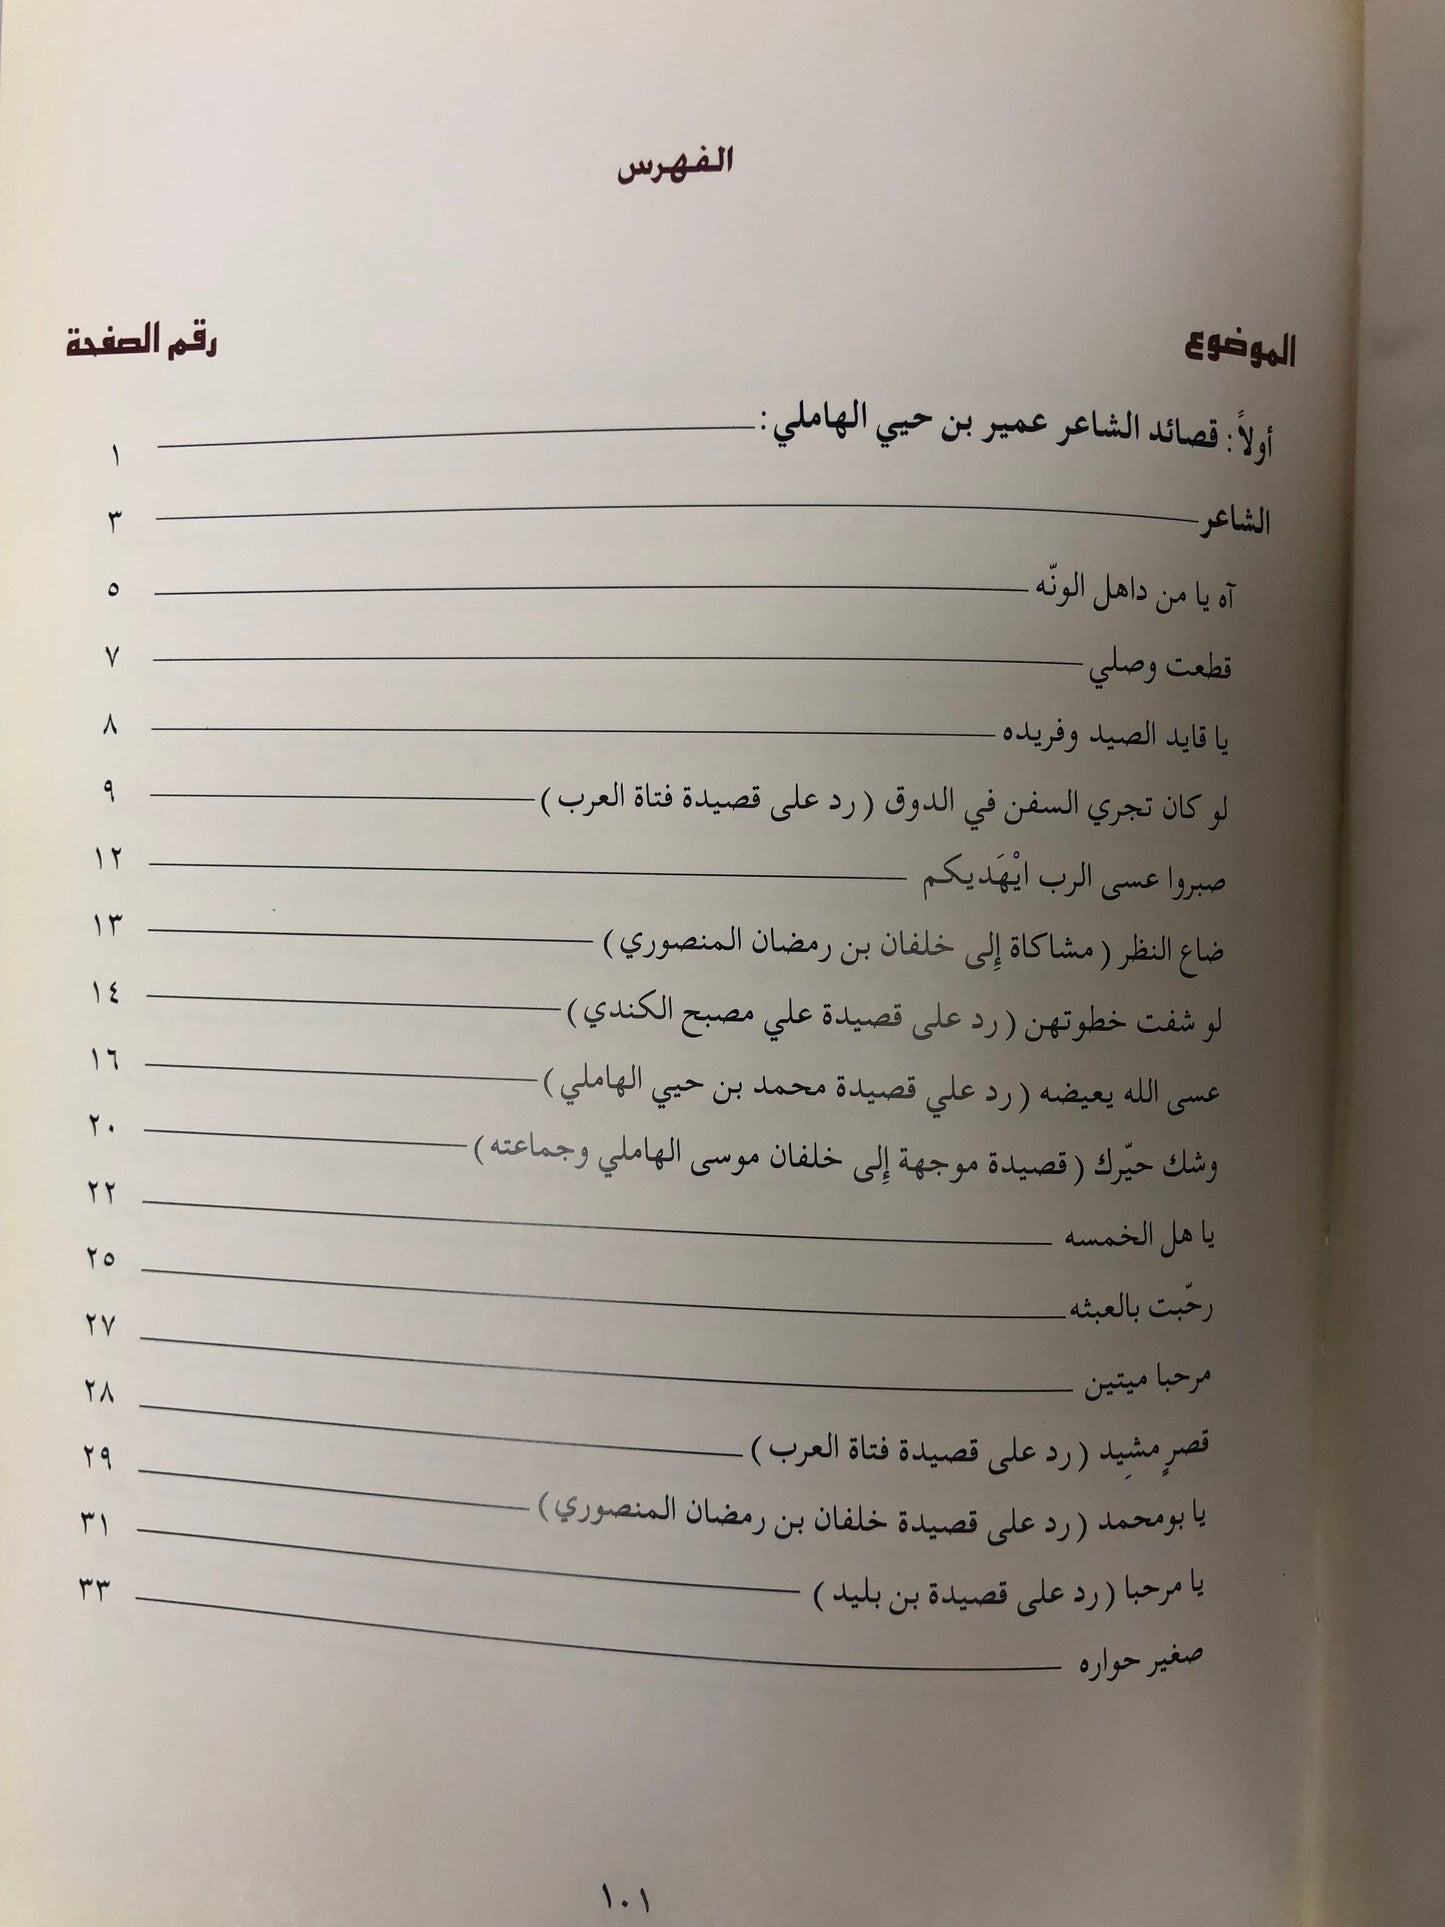 الفهرس
الموضوع رقم الصفحة
أولاً: قصائد الشاعر عمير بن حيي الهاملي: ١
الشاعر ٣
آه يا من داهل الونّه ٥
قطعت وصلي ٧
يا قايد الصيد وفريده ٨
لو كان تجري السفن في الدوق (رد على قصيدة فتاة العرب) ٩
صبروا عسى الرب ايْهَديكم ١٢
ضاع النظر (مشاكاة إِلى خلفان بن رمضان المنصوري) ١٣
لو شفت خطوتهن (رد على قصيدة علي مصبح الكندي) ١٤
عسى الله يعيضه (رد علي قصيدة محمد بن حيي الهاملي) ١٦
وشك حيّرك (قصيدة موجهة إِلى خلفان موسى الهاملي وجماعته) ٢٠
يا هل الخمسه ٢٢
رحّبت بالعبثه ٢٥
مرحبا ميتين ٢٧
قصرٍ مشِيد (رد على قصيدة فتاة العرب) ٢٨
يا بومحمد (رد على قصيدة خلفان بن رمضان المنصوري) ٢٩
يا مرحبا (رد على قصيدة بن بليد) ٣١
صغير حواره ٣٣
١٠١